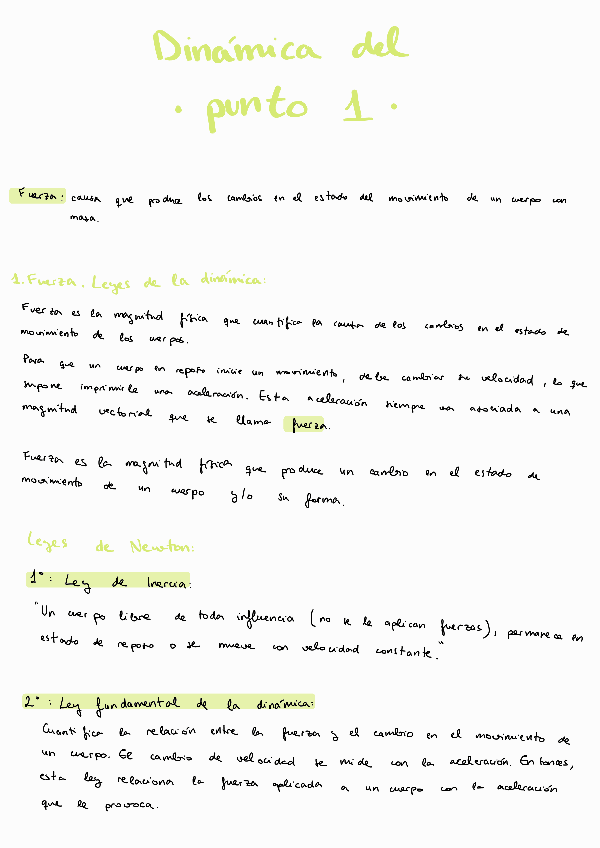 Dinámica del
· punto 1 ·
Fuerza: causa que produce los cambios en el estado del movimiento de un cuerpo con
masa.
1. Fuerza. Leyes de la dinámica:
Fuerza es la magnitud física que cuantifica la causa de los cambios en el estado de
movimiento de los cuerpos.
Para que un cuerpo en reposo inicie un movimiento, debe cambiar su velocidad, lo que
supone imprimirle una aceleración. Esta aceleración siempre va asociada a una
magnitud vectorial que se llama fuerza.
Fuerza es la magnitud física que produce un cambio en el estado de
movimiento de un cuerpo y/o su forma.
Leyes de Newton:
1ª: Ley de Inercia:
"Un cuerpo libre de toda influencia (no se le aplican fuerzas), permanece en
estado de reposo o se mueve con velocidad constante."
2ª: Ley fundamental de la dinámica:
Cuantifica la relación entre la fuerza y el cambio en el movimiento de
un cuerpo. El cambio de velocidad se mide con la aceleración. Entonces,
esta ley relaciona la fuerza aplicada a un cuerpo con la aceleración
que le provoca.